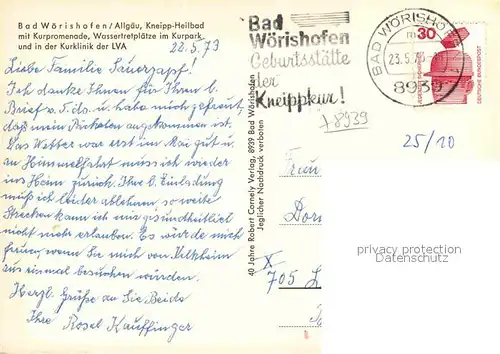 Bad Wörishofen/Allgäu, Kneipp-Heilbad
mit Kurpromenade, Wassertretplätze im Kurpark
und in der Kurklinik der LVA
22.5.73
Liebe Familie Sauerzapf!
Ich danke Ihnen für Ihren l.
Brief v. 5. ds. u. habe mich gefreut,
daß mein Päckchen angekommen ist.
Das Wetter war erst im Mai gut u.
zu Himmelfahrt muss ich wieder
ins Heim zurück. Ihre l. Einladung
muß ich leider ablehnen, so weite
Strecken kann ich mir gesundheitlich
nicht mehr erlauben. Es würde mich
freuen, wenn Sie mich von
aus einmal besuchen würden.
Herzl. Grüße an Sie Beide
Ihre Rosel Kauffinger
40 Jahre Robert Cornely Verlag, 8939 Bad Wörishofen
Jeglicher Nachdruck verboten
Bad
Wörishofen
Geburtsstätte
der
Kneippkur!
BAD WÖRISHOFEN
m
23.5.73
8939
30
DEUTSCHE BUNDESPOST
8939
25/10
privacy protection
oldthing.com
X
705